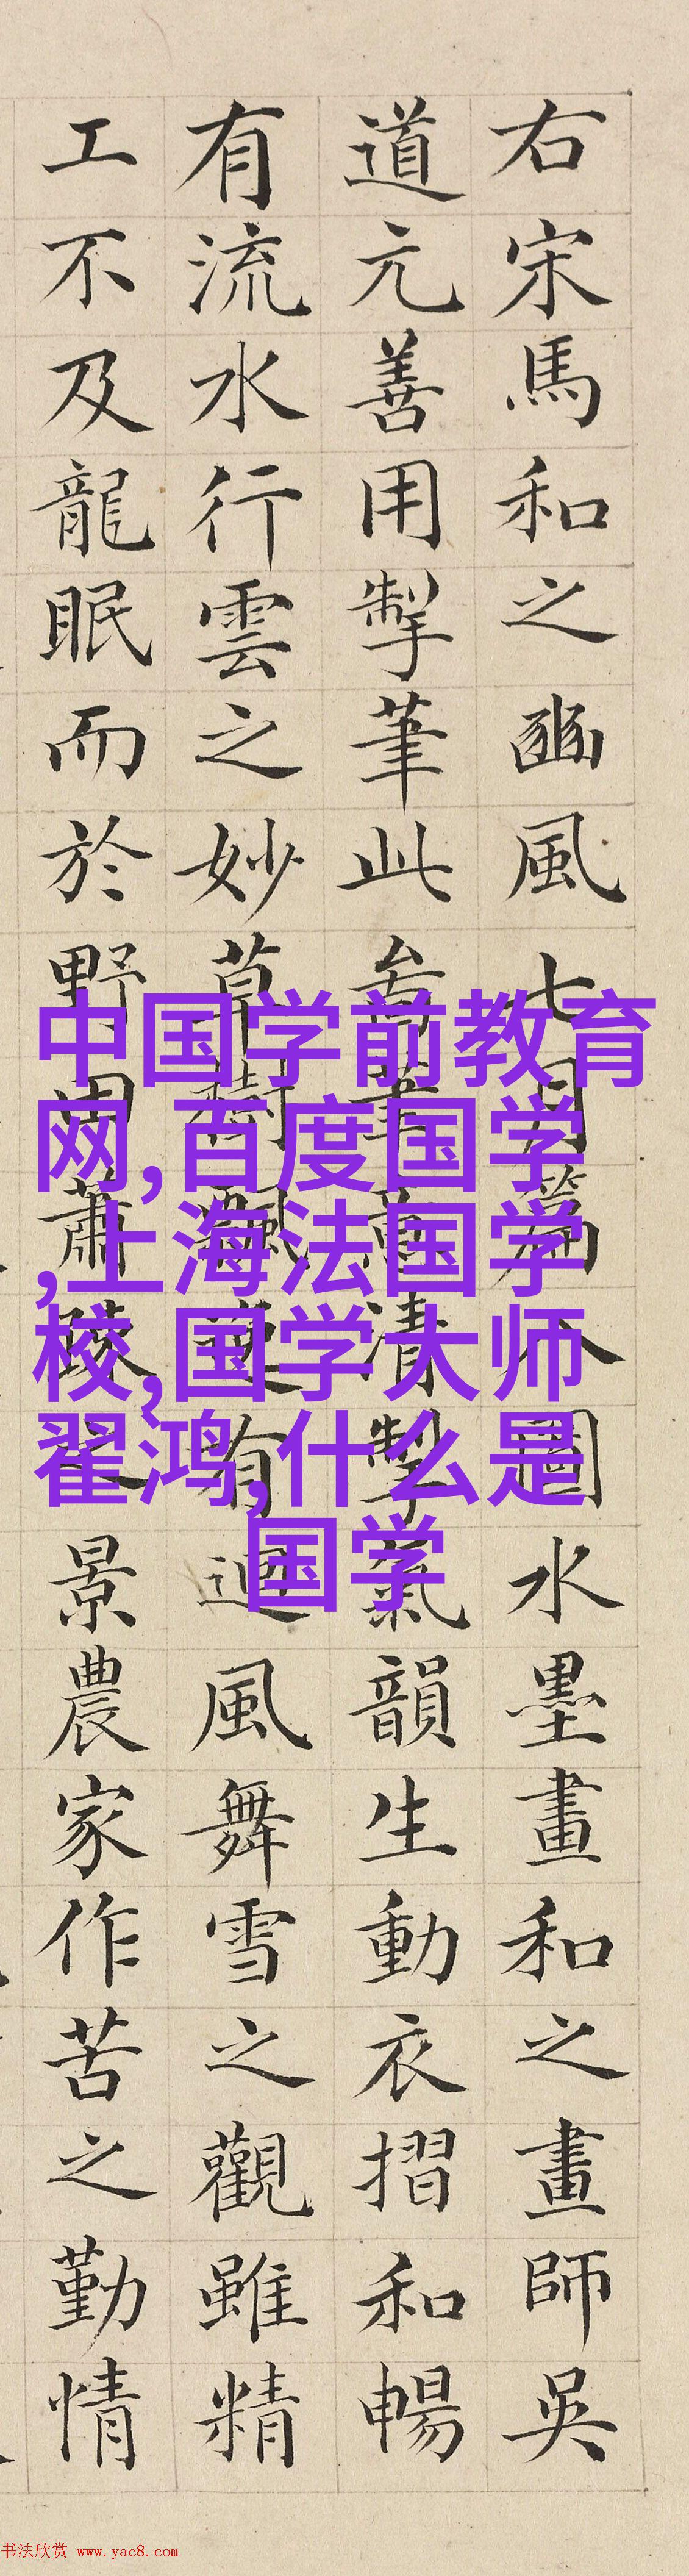 右宋馬和之豳風七月篇八圖水墨畫和之畫師吳
道元善用掣筆此卷筆清掣氣韻生動衣摺和暢
有流水行雲之妙草樹飄有迴風舞雪之觀雖精
工不及龍眠而於野田蕭疎之景農家作苦之勤情
中国学前教育
网,百度国学
,上海法国学
校,国学大师
翟鸿,什么是
国学
书法欣赏 www.yac8.com